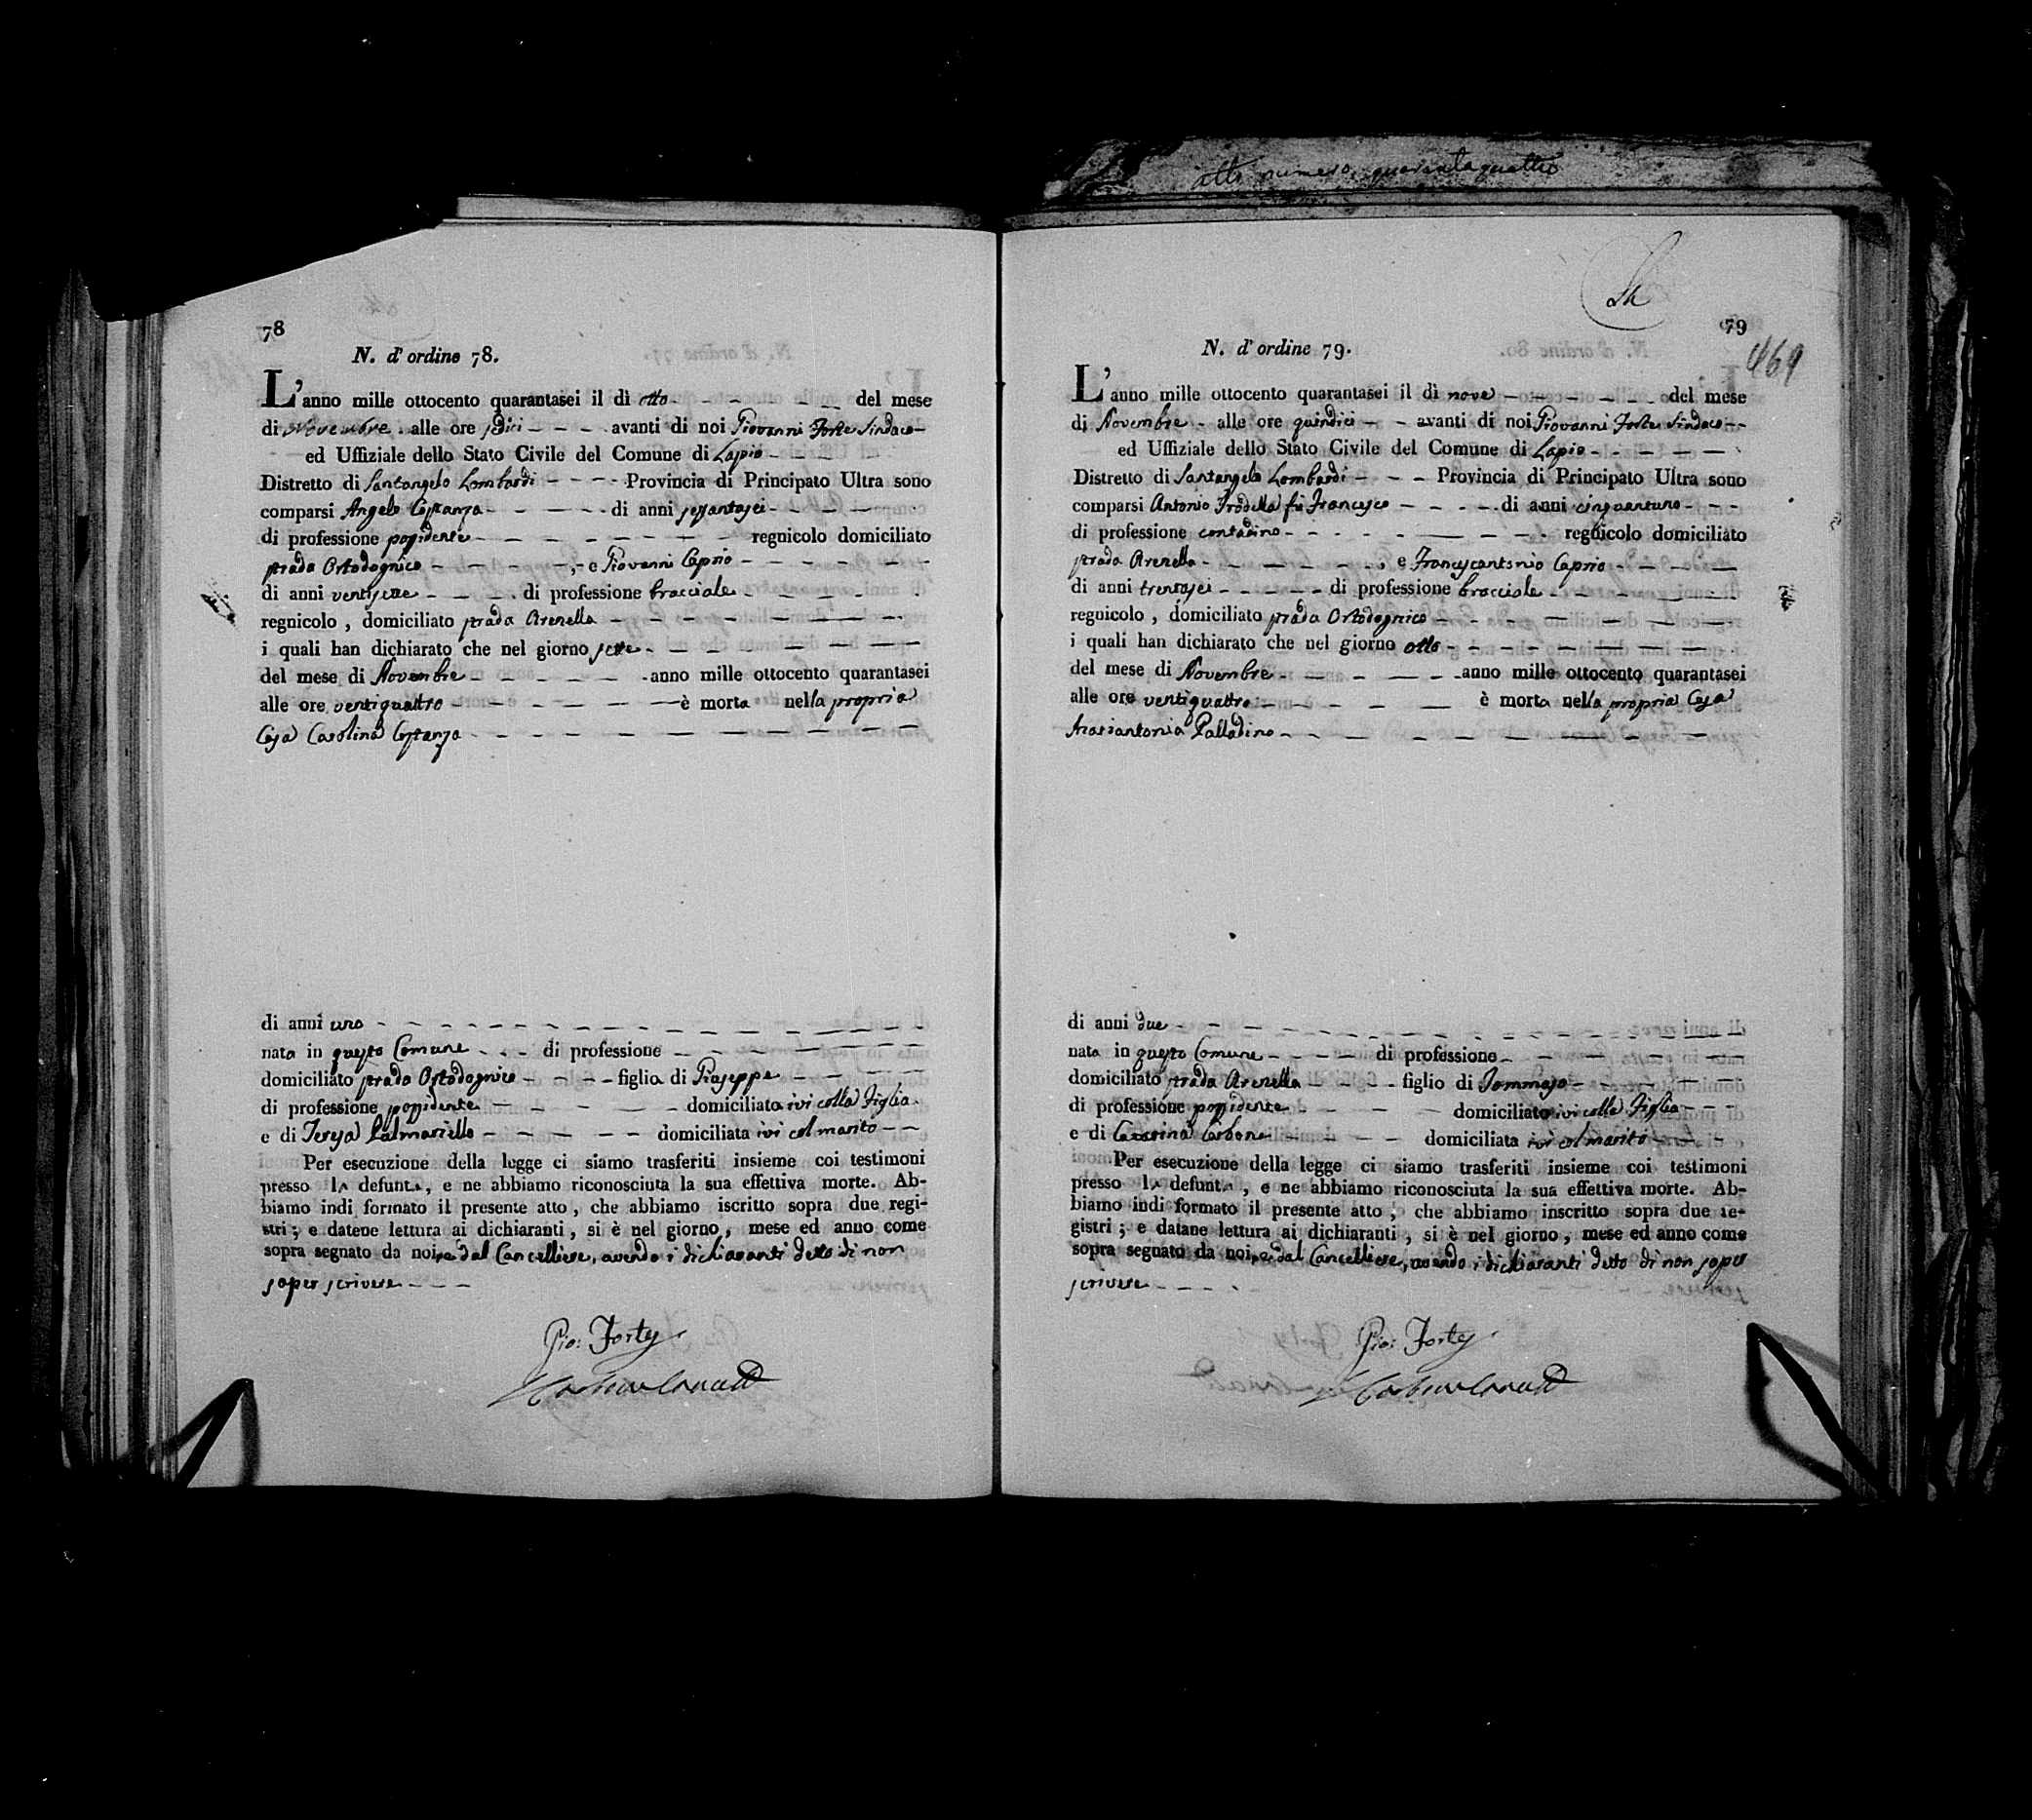 atto numero quarantaquattro
78
N. d' ordine 78.
L'anno mille ottocento quarantasei il dì otto del mese
di Novembre alle ore sedici avanti di noi Giovanni Forte Sindaco
ed Uffiziale dello Stato Civile del Comune di Lapio
Distretto di Santangelo Lombardi Provincia di Principato Ultra sono
comparsi Angelo Costanza di anni sessantasei
di professione possidente regnicolo domiciliato
strada Ortodognico , e Giovanni Caprio
di anni ventisette di professione bracciale
regnicolo , domiciliato strada Arenella
i quali han dichiarato che nel giorno sette
del mese di Novembre anno mille ottocento quarantasei
alle ore ventiquattro è morta nella propria
Casa Carolina Costanza
di anni uno
nata in questo Comune di professione
domiciliato strada Ortodognico figlia di Giuseppe
di professione possidente domiciliato ivi colla Figlia
e di Teresa Palmariello domiciliata ivi col marito
Per esecuzione della legge ci siamo trasferiti insieme coi testimoni
presso la defunta, e ne abbiamo riconosciuta la sua effettiva morte. Ab-
biamo indi formato il presente atto , che abbiamo iscritto sopra due regi-
stri ; e datene lettura ai dichiaranti , si è nel giorno , mese ed anno come
sopra segnato da noi, e dal Cancelliere, avendo i dichiaranti detto di non
saper scrivere
Gio: Forte
79
469
N. d' ordine 79.
L'anno mille ottocento quarantasei il dì nove del mese
di Novembre alle ore quindici avanti di noi Giovanni Forte Sindaco
ed Uffiziale dello Stato Civile del Comune di Lapio
Distretto di Santangelo Lombardi Provincia di Principato Ultra sono
comparsi Antonio Trodella fu Francesco di anni cinquantuno
di professione contadino regnicolo domiciliato
strada Arenella , e Francescantonio Caprio
di anni trentasei di professione bracciale
regnicolo , domiciliato strada Ortodognico
i quali han dichiarato che nel giorno otto
del mese di Novembre anno mille ottocento quarantasei
alle ore ventiquattro è morta nella propria Casa
Mariantonia Palladino
di anni due
nata in questo Comune di professione
domiciliato strada Arenella figlio di Tommaso
di professione possidente domiciliato ivi colla Figlia
e di Carbone domiciliata ivi col marito
Per esecuzione della legge ci siamo trasferiti insieme coi testimoni
presso la defunta , e ne abbiamo riconosciuta la sua effettiva morte. Ab-
biamo indi formato il presente atto , che abbiamo inscritto sopra due re-
gistri ; e datane lettura ai dichiaranti , si è nel giorno , mese ed anno come
sopra segnato da noi, e dal Cancelliere, avendo i dichiaranti detto di non saper
scrivere
Gio: Forte